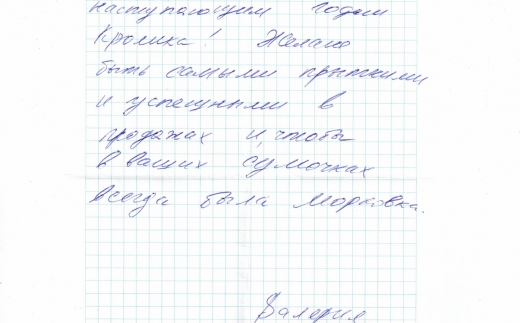 наступающим годом
Кролика! Желаю
быть самыми прыткими
и успешными в
продажах и, чтобы
в ваших сумочках
всегда была морковка.
Валерия